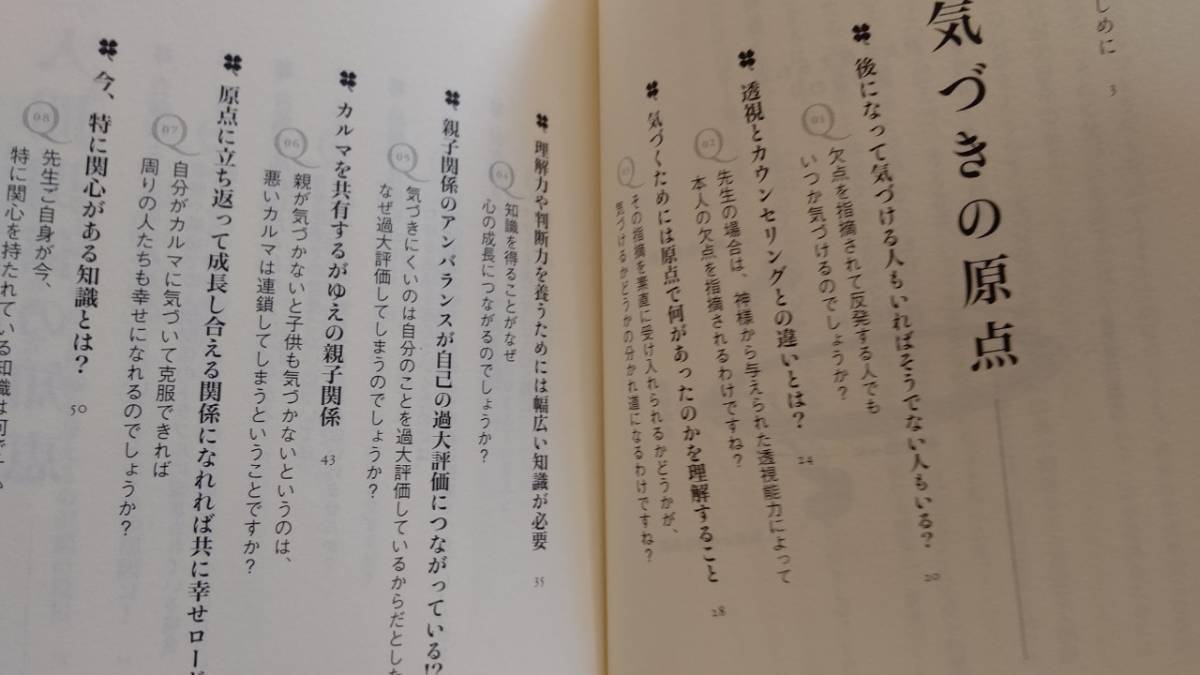 しめに 3
気づきの原点
後になって気づける人もいればそうでない人もいる? 20
Q01 欠点を指摘されて反発する人でも
いつか気づけるのでしょうか?
透視とカウンセリングとの違いとは? 24
Q02 先生の場合は、神様から与えられた透視能力によって
本人の欠点を指摘されるわけですね?
気づくためには原点で何があったのかを理解すること 28
Q03 その指摘を素直に受け入れられるかどうかが、
気づけるかどうかの分かれ道になるわけですね?
理解力や判断力を養うためには幅広い知識が必要 35
Q04 知識を得ることがなぜ
心の成長につながるのでしょうか?
親子関係のアンバランスが自己の過大評価につながっている!?
Q05 気づきにくいのは自分のことを過大評価しているからだとした
なぜ過大評価してしまうのでしょうか?
カルマを共有するがゆえの親子関係 43
Q06 親が気づかないと子供も気づかないというのは、
悪いカルマは連鎖してしまうということですか?
原点に立ち返って成長し合える関係になれれば共に幸せロード
Q07 自分がカルマに気づいて克服できれば
周りの人たちも幸せになれるのでしょうか?
今、特に関心がある知識とは? 50
Q08 先生ご自身が今、
特に関心を持たれている知識は何で